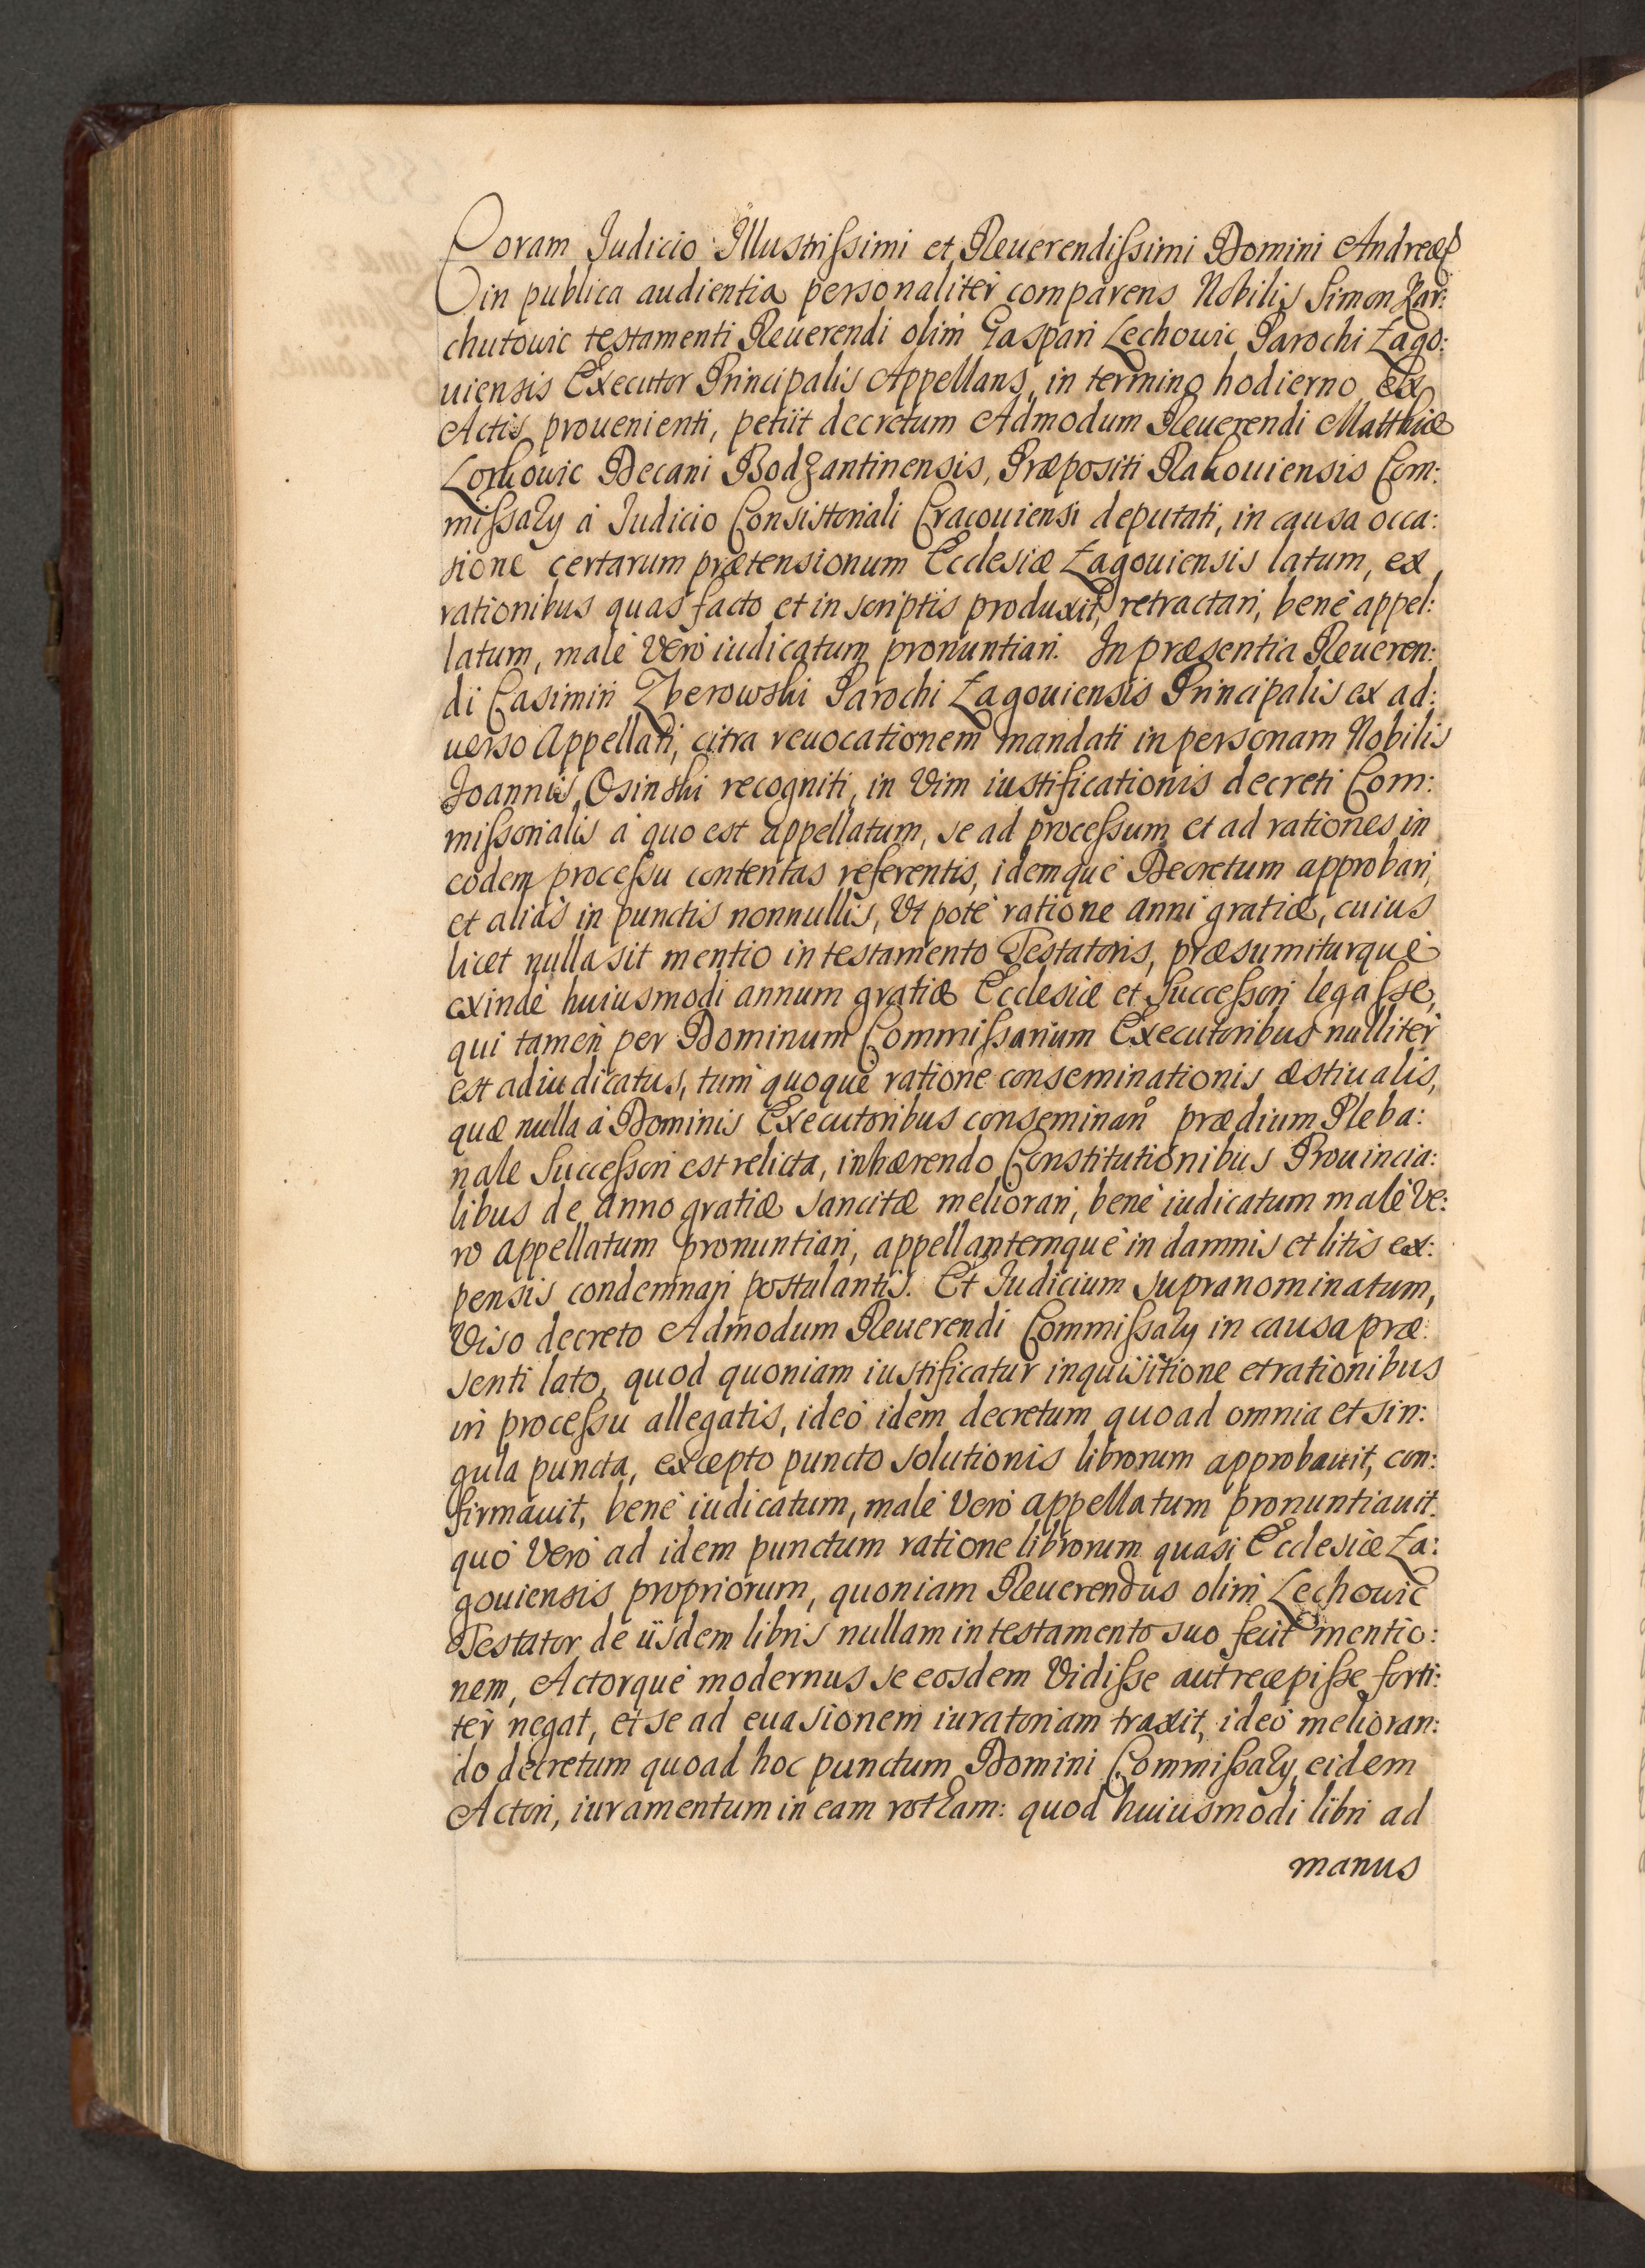 Coram Judicio Illustrissimi et Reuerendissimi Domini Andreæ
in publica audientia personaliter comparens Nobilis Simon Kar:
chutowic testamenti Reuerendi olim Gaspari Lechowic Parochi Łago:
uiensis Executor Principalis Appellans, in termino hodierno, ex
Actis prouenienti, petijt decretum Admodum Reuerendi Matthiæ
Lorkowic Decani Bodzantinensis, Præpositi Rakouiensis Com:
missarÿ à Judicio Consistoriali Cracouiensi deputati, in causa occa:
sione certarum prætensionum Ecclesiæ Łagouiensis latum, ex
rationibus quas facto et in scriptis produxit, retractari, benè appel:
latum, malè verò iudicatum pronuntiari. In præsentia Reueren:
di Casimiri Zberowski Parochi Łagouiensis Principalis ex ad:
uerso Appellati, citra reuocationem mandati in personam Nobilis
Joannis Osinski recogniti, in vim iustificationis decreti Com:
missorialis à quo est appellatum, se ad processum et ad rationes in
eodem processu contentas referentis, idemquè Decretum approbari,
et aliàs in punctis nonnullis, Vt potè ratione anni gratiæ, cuius
licet nulla sit mentio in testamento Testatoris, præsumiturquè
exindè huiusmodi annum gratiæ Ecclesiæ et Successori legasse,
qui tamen per Dominum Commissarium Executoribus nulliter
est adiudicatus, tum quoquè ratione conseminationis æstiualis,
quæ nulla à Dominis Executoribus conseminan̊ prædium Pleba:
nale Successori est relicta, inhærendo Constitutionibus Prouincia:
libus de anno gratiæ sancitæ meliorari, benè iudicatum malè ve:
ro appellatum pronuntiari, appellantemquè in damnis et litis ex:
pensis condemnari postulantis. Et Judicium supranominatum,
Viso decreto Admodum Reuerendi Commissarÿ in causa præ:
senti lato, quod quoniam iustificatur inquisitione et rationibus
in processu allegatis, ideò idem decretum quoad omnia et sin:
gula puncta, excepto puncto solutionis librorum approbauit, con:
firmauit, benè iudicatum, malè verò appellatum pronuntiauit.
quò verò ad idem punctum ratione librorum quasi Ecclesiæ Ła:
gouiensis propriorum, quoniam Reuerendus olim Lechowic
Testator de ijsdem libris nullam in testamento suo fecit mentio:
nem, Actorquè modernus se eosdem vidisse aut recepisse forti:
ter negat, et se ad euasionem iuratoriam traxit, ideò melioran:
do decretum quoad hoc punctum Domini Commissarÿ, eidem
Actori, iuramentum in eam rotham: quod huiusmodi libri ad
manus